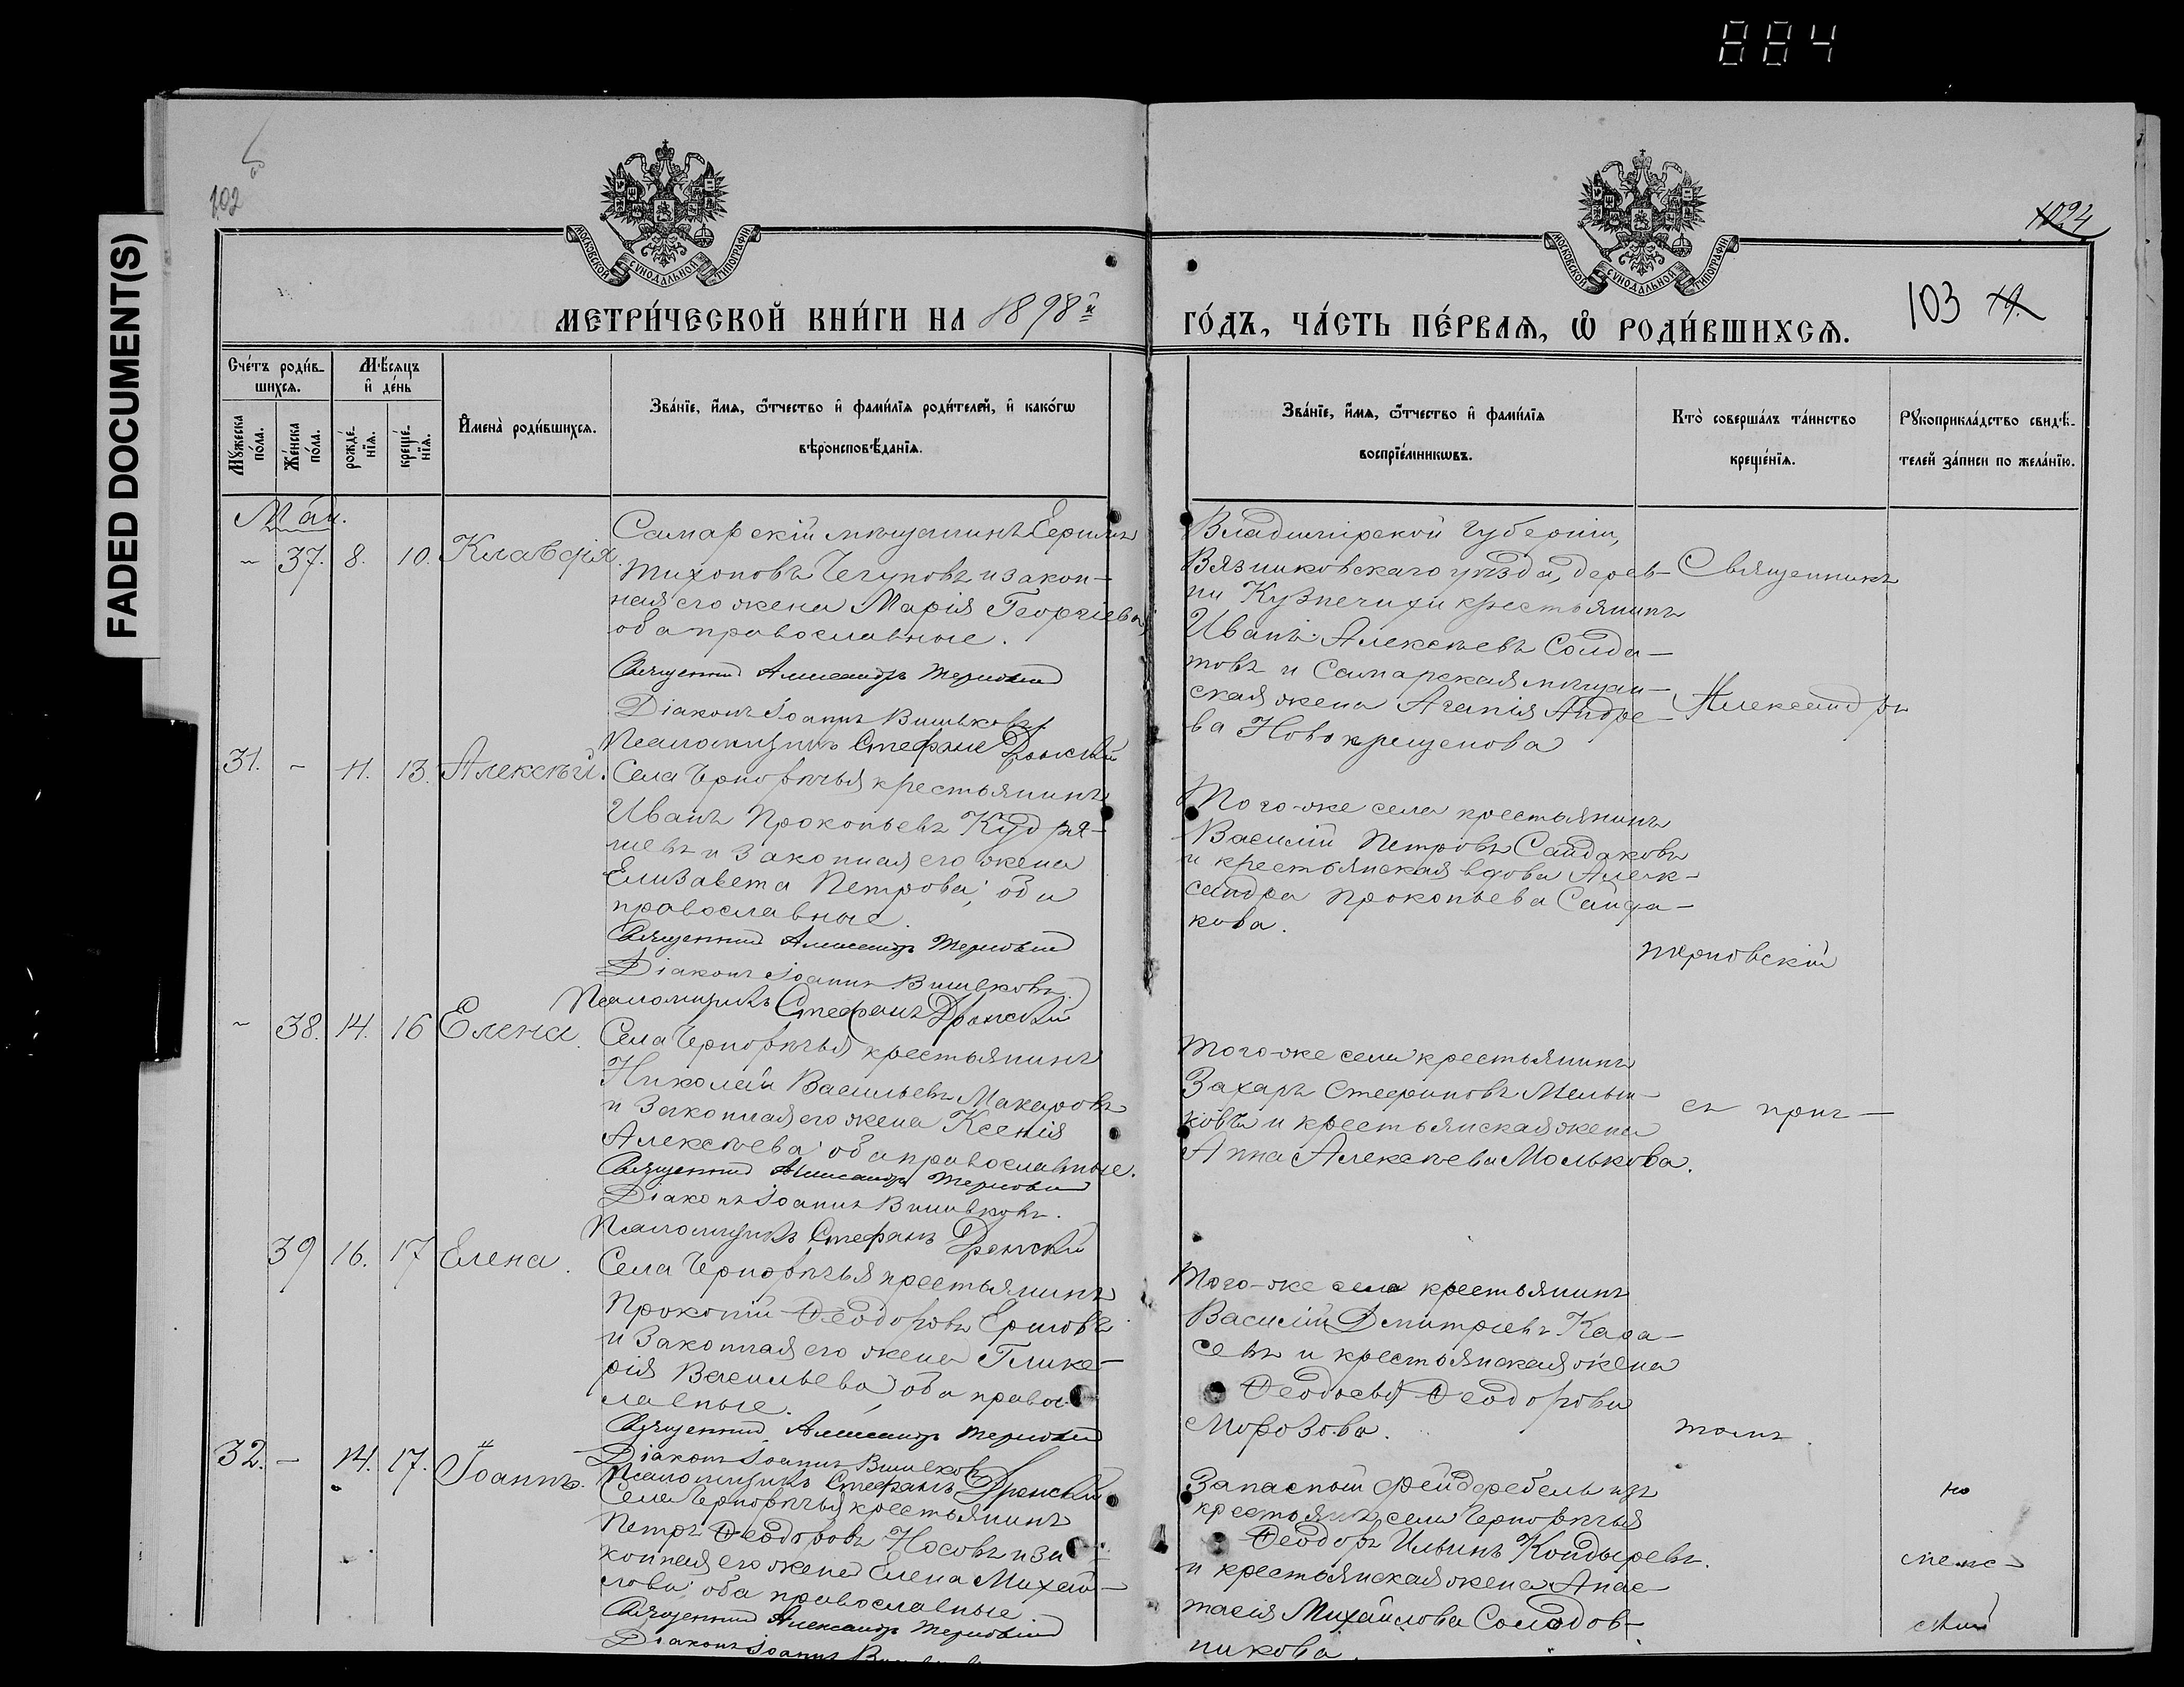 884
FADED DOCUMENT(S)
102
1024
МОСКОВСКОЙ СУНОДАЛЬНОЙ ТИПОГРАФІИ
МОСКОВСКОЙ СУНОДАЛЬНОЙ ТИПОГРАФІИ
МЕТРИ́ЧЕСКОЙ КНИ́ГИ НА 1898й
ГО́ДЪ, ЧА́СТЬ ПЕ́РВАѦ, Ѿ РОДИ́ВШИХСѦ.
103 19.
Сче́тъ роди́в-
шихсѧ.
Мꙋ́жеска по́ла.
Же́нска по́ла.
Мѣ́сѧцъ
и҆ де́нь
рожде́-
нїѧ.
креще́-
нїѧ.
И҆мена̀ роди́вшихсѧ.
Зва́нїе, и҆́мѧ, ѻ҆́тчество и҆ фами́лїѧ роди́телей, и҆ како́гѡ
вѣроисповѣ́данїѧ.
Зва́нїе, и҆́мѧ, ѻ҆́тчество и҆ фами́лїѧ
воспрїе́мникѡвъ.
Кто̀ соверша́лъ та́инство
креще́нїѧ.
Рꙋкоприкла́дство свидѣ́-
телей за́писи по жела́нїю.
Май.
– 37. 8. 10. Клавдія.
Самарскій мѣщанинъ
Тихоновъ Чегуновъ и закон-
ная его жена Марія Георгіева,
оба православные.
Священникъ Александръ Терновскій
Діаконъ Іоаннъ Вишевковъ
Псаломщикъ Стефанъ Дронскій
Владимірской губерніи,
Вязниковскаго уѣзда, дерев-
ни Кузнечихи крестьянинъ
Иванъ Алексѣевъ Солда-
товъ и Самарская мѣщан-
ская жена Агапія Андре-
ва Новокрещенова
Священникъ
Александръ
Терновскій
съ прич-
томъ
31. – 11. 13. Алексѣй.
Села Чернорѣчья крестьянинъ
Иванъ Прокопьевъ Кудря-
шевъ и законная его жена
Елизавета Петрова; оба
православные.
Священникъ Александръ Терновскій
Діаконъ Іоаннъ Вишевковъ.
Псаломщикъ Стефанъ Дронскій
Того-же села крестьянинъ
Василій Петровъ Сайдаковъ
и крестьянская вдова Алек-
сандра Прокопьева Сайда-
кова.
– 38. 14. 16 Елена.
Села Чернорѣчья крестьянинъ
Николай Васильевъ Макаровъ
и законная его жена Ксенія
Алексѣева оба православные.
Священникъ Александръ Терновскій
Діаконъ Іоаннъ Вишевковъ.
Псаломщикъ Стефанъ Дронскій
Того-же села крестьянинъ
Захаръ Стефановъ Мельни-
ковъ и крестьянская жена
Анна Алексѣева Молькова.
39 16. 17 Елена.
Села Чернорѣчья крестьянинъ
Прокопій Ѳеодоровъ Ершовъ
и законная его жена Глике-
рія Васильева оба правос-
лавные.
Священникъ Александръ Терновскій
Діаконъ Іоаннъ Вишевковъ
Псаломщикъ Стефанъ Дронскій
Того-же села крестьянинъ
Василій Дмитріевъ Кара-
севъ и крестьянская жена
Ѳеодосья Ѳеодорова
Морозова.
32. – 14. 17. Іоаннъ.
Села Чернорѣчья крестьянинъ
Петръ Ѳеодоровъ Носовъ и за-
конная его жена Елена Михай-
лова оба православные.
Священникъ Александръ Терновскій
Діаконъ Іоаннъ
Запасной фейдфебель изъ
крестьянъ села Чернорѣчья
Ѳеодоръ Ильинъ Кондыревъ.
и крестьянская жена Анас-
тасія Михайлова Солодов-
никова.